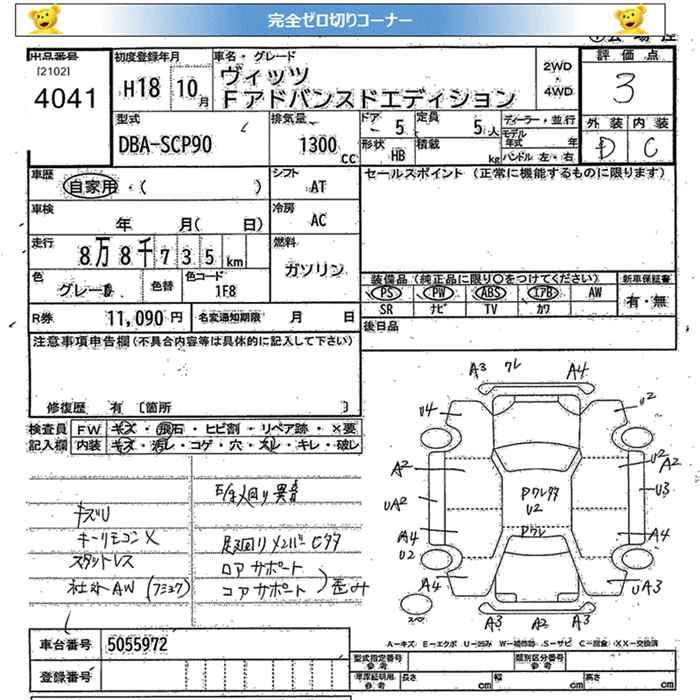 完全ゼロ切りコーナー
出品番号
[2102]
4041
初度登録年月
H18 10月
車名・グレード
ヴィッツ
Fアドバンスドエディション
2WD
・
4WD
評価点
3
外装 内装
D C
型式
DBA-SCP90
排気量
1300 CC
ドア 5
定員 5人
形状 HB
積載 kg
ディーラー・並行
モデル年式 年
ハンドル 左・右
車歴
自家用・( )
シフト
AT
セールスポイント (正常に機能するものに限ります)
車検
年 月( 日)
冷房
AC
走行
8万8千735km
燃料
ガソリン
色
グレーⅡ
色替
色コード
1F8
装備品 (純正品に限り○をつけてください)
PS PW ABS エアB AW
SR ナビ TV カワ
新車保証書
有・無
R券 11,090円
名変通知期限 月 日
後日品
注意事項申告欄(不具合内容等は具体的に記入して下さい)
修復歴 有 [箇所 ]
検査員 FW キズ・飛石・ヒビ割・リペア跡・×要
記入欄 内装 キズ・汚レ・コゲ・穴・スレ・キレ・破レ
キズU
キーリモコン×
スタットレス
社外AW
異音
足廻リメンバーCサヤ
ロアサポート
コアサポート
歪み
A3 ワレ A4
U4 U2
A2 U2 A2
UA2 U3
PワレサヤU2
A4 U2 Pワレ A4
A4 UA3
スペア
A3 A2 A3
A-キズ E-エクボ U-凹み W-補修跡 S-サビ C-腐食 XX-交換済
車台番号 5055972
登録番号
型式指定番号 参考
類別区分番号 参考
車庫証明用 参考
長さ cm
幅 cm
高さ cm